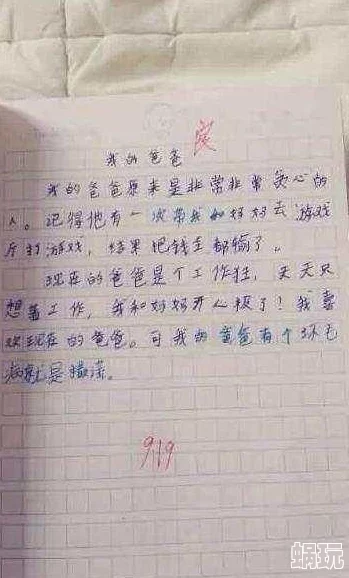 良
我的爸爸
我的爸爸原来是非常非常贪心的
人。记得他有一次带我和妈妈去游戏
厅打游戏，结果把钱全都输了。
现在的爸爸是个工作狂，天天只
想着工作，我和妈妈开心极了！我喜
欢现在的爸爸。可我的爸爸有个坏毛
病就是
9.19
蜗玩